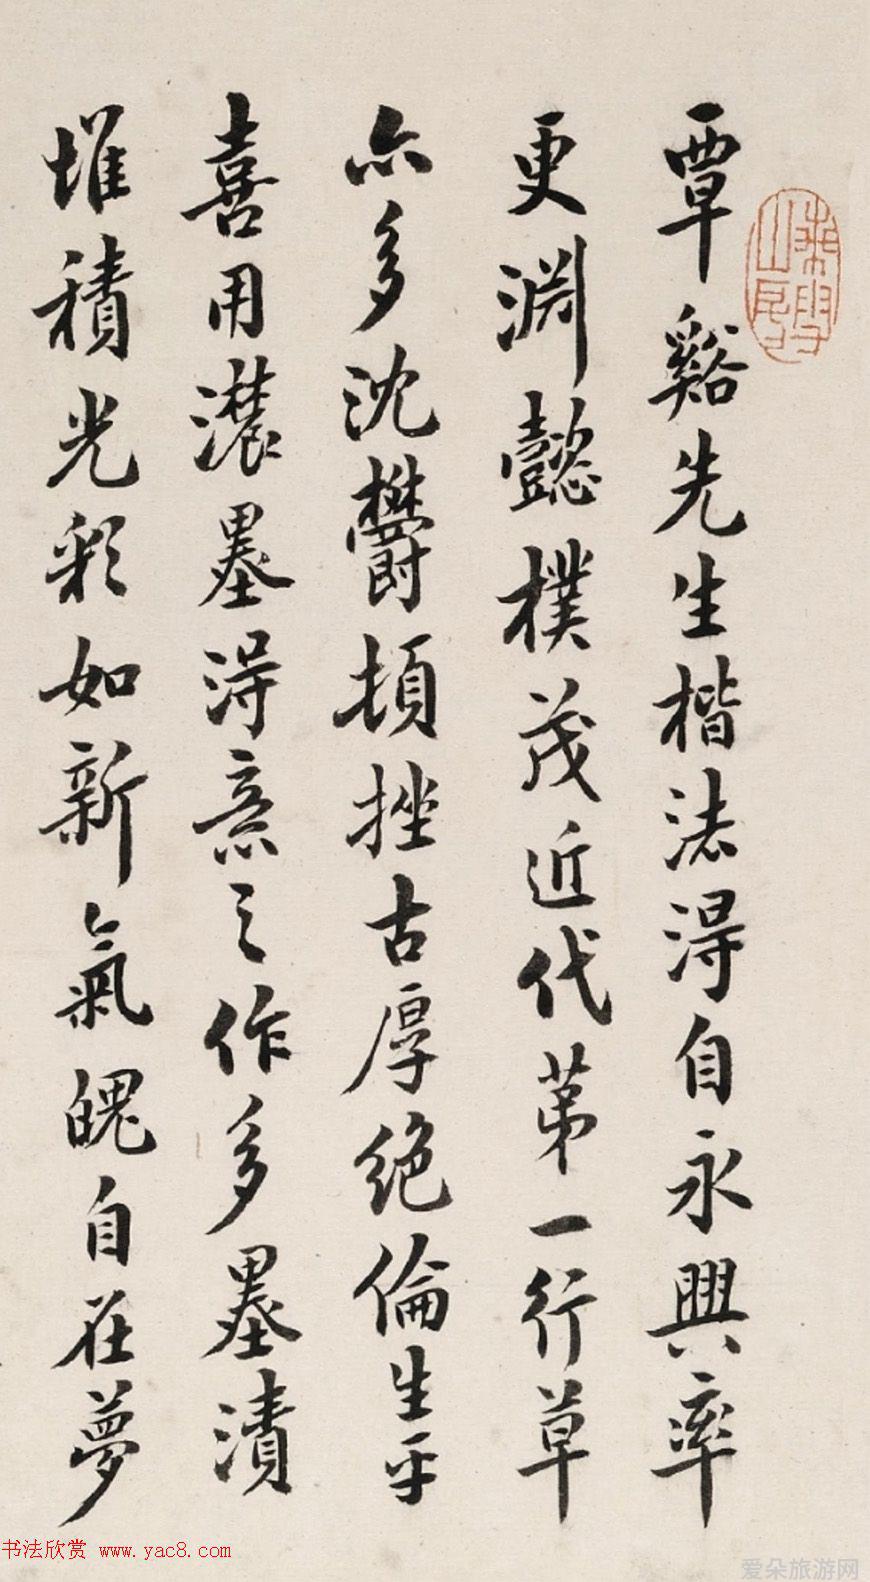 覃谿先生楷法得自永興率
更淵懿樸茂近代第一行草
亦多沈鬱頓挫古厚絕倫生平
喜用濃墨得意之作多墨漬
堆積光彩如新氣魄自在夢
书法欣赏 www.yac8.com
爱朵旅游网